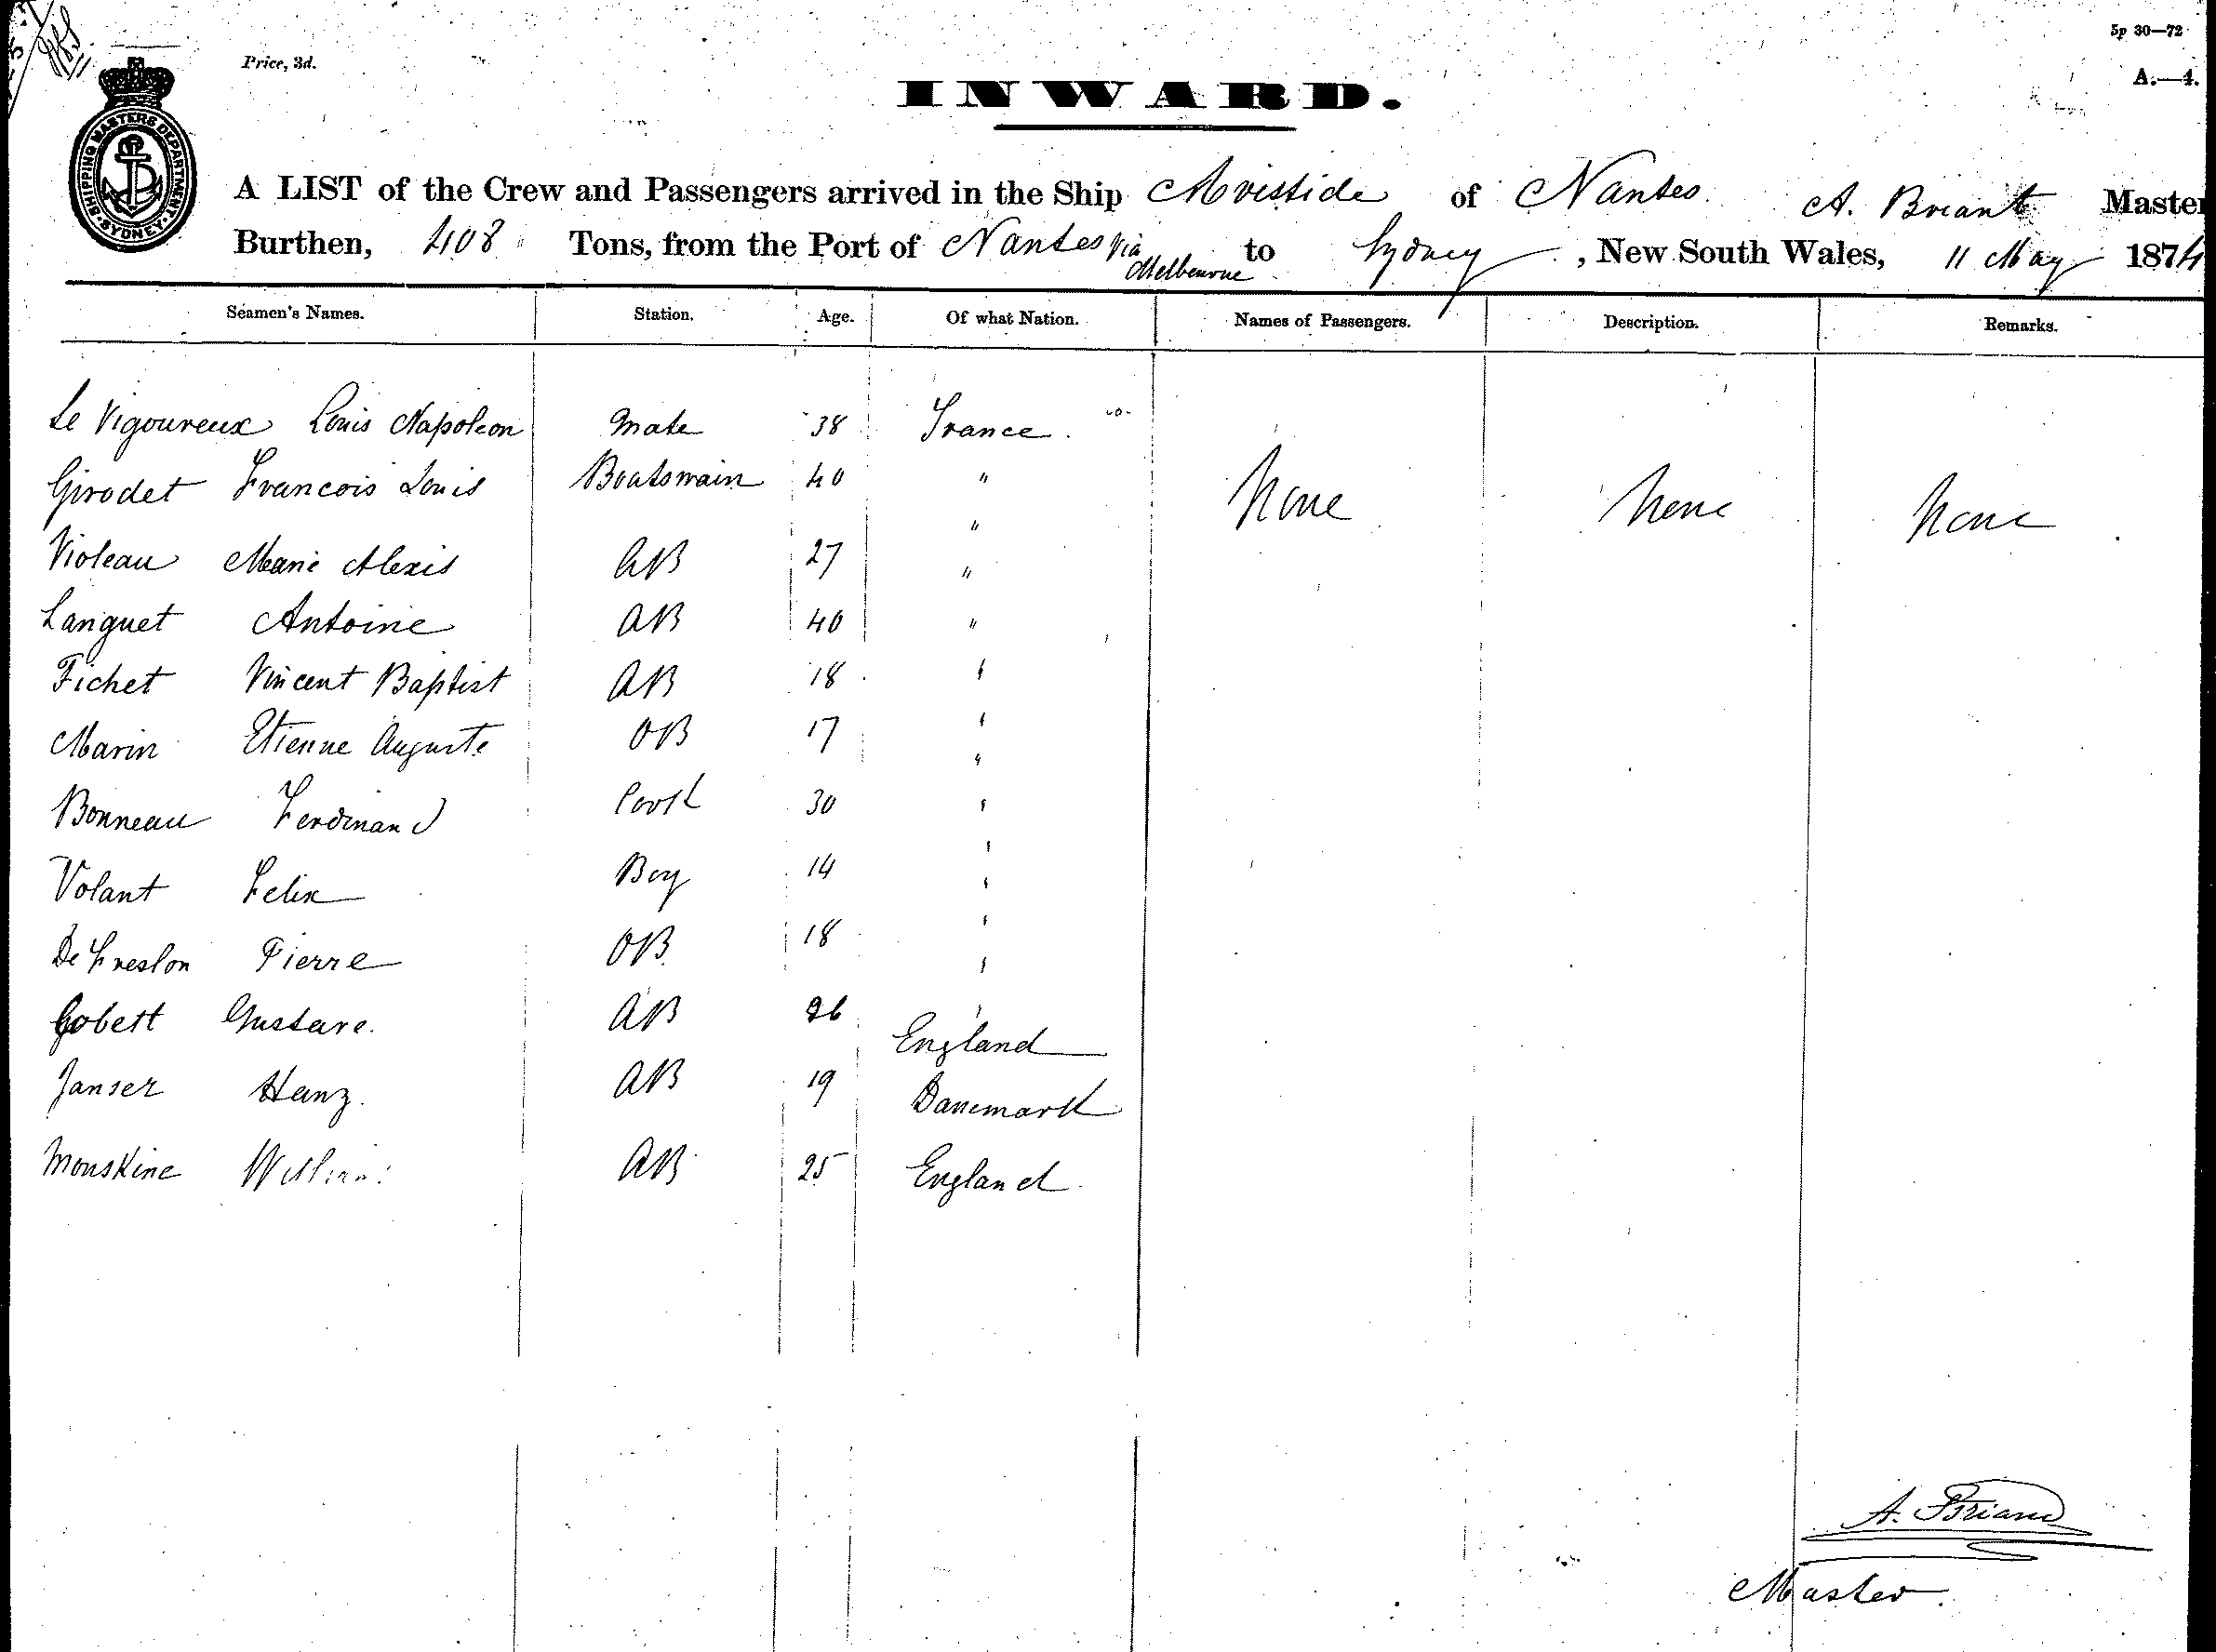 5p 30—72
Price, 3d.
A.—4.
INWARD.
SHIPPING MASTERS DEPARTMENT
SYDNEY
A LIST of the Crew and Passengers arrived in the Ship Aristide of Nantes. A. Briant Master
Burthen, 408 Tons, from the Port of Nantes via Melbourne to Sydney, New South Wales, 11 May 1874
Seamen's Names. Station. Age. Of what Nation. Names of Passengers. Description. Remarks.
Le Vigoureux Louis Napoleon Mate 38 France.
Girodet Francois Louis Boatswain 40 "
None None None
Violeau Marie Alexis AB 27 "
Languet Antoine AB 40 "
Fichet Vincent Baptist AB 18 "
Marin Etienne Auguste OB 17 "
Bonneau Ferdinand Cook 30 "
Volant Felix Boy 14 "
De Freslon Pierre OB 18 "
Gobett Gustave. AB 26 England
Janser Hanz. AB 19 Danemark
Mouskine William AB 25 England
A. Briand
Master.